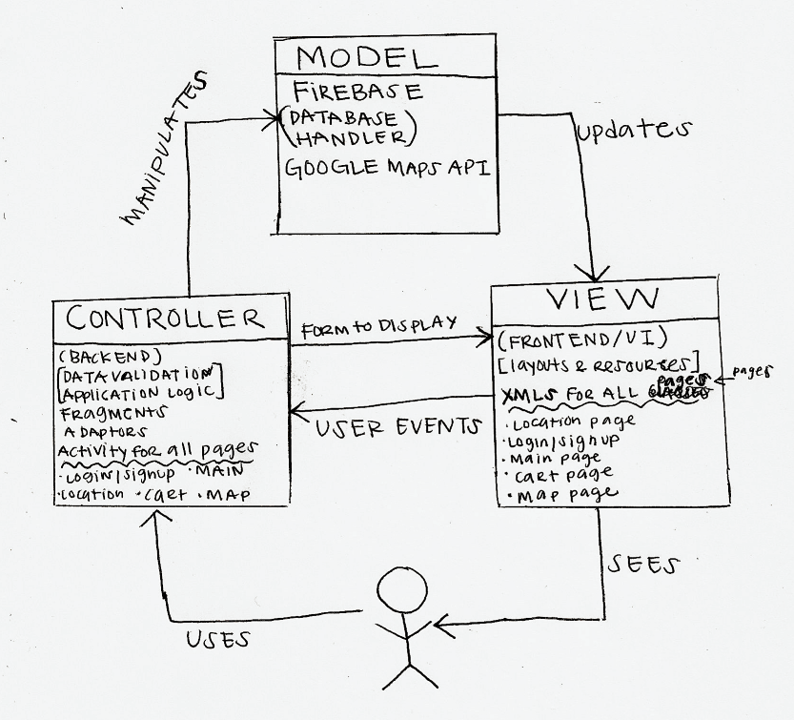 MODEL
FIREBASE
(DATABASE
HANDLER)
GOOGLE MAPS API
MANIPULATES
updates
CONTROLLER
(BACKEND)
[DATA VALIDATION
APPLICATION LOGIC]
FRAGMENTS
ADAPTORS
Activity for all pages
·Login/signup ·MAIN
·Location ·CART ·MAP
FORM TO DISPLAY
USER EVENTS
VIEW
(FRONTEND/UI)
[layouts & resources]
pages
XMLS FOR ALL
pages
·Location page
·Login/signup
·Main page
·Cart page
·Map page
SEES
USES